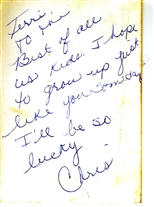 Terri
To the
Best of all
us kids. I hope
to grow up just
like you someday
I'll be so
lucky
Chris